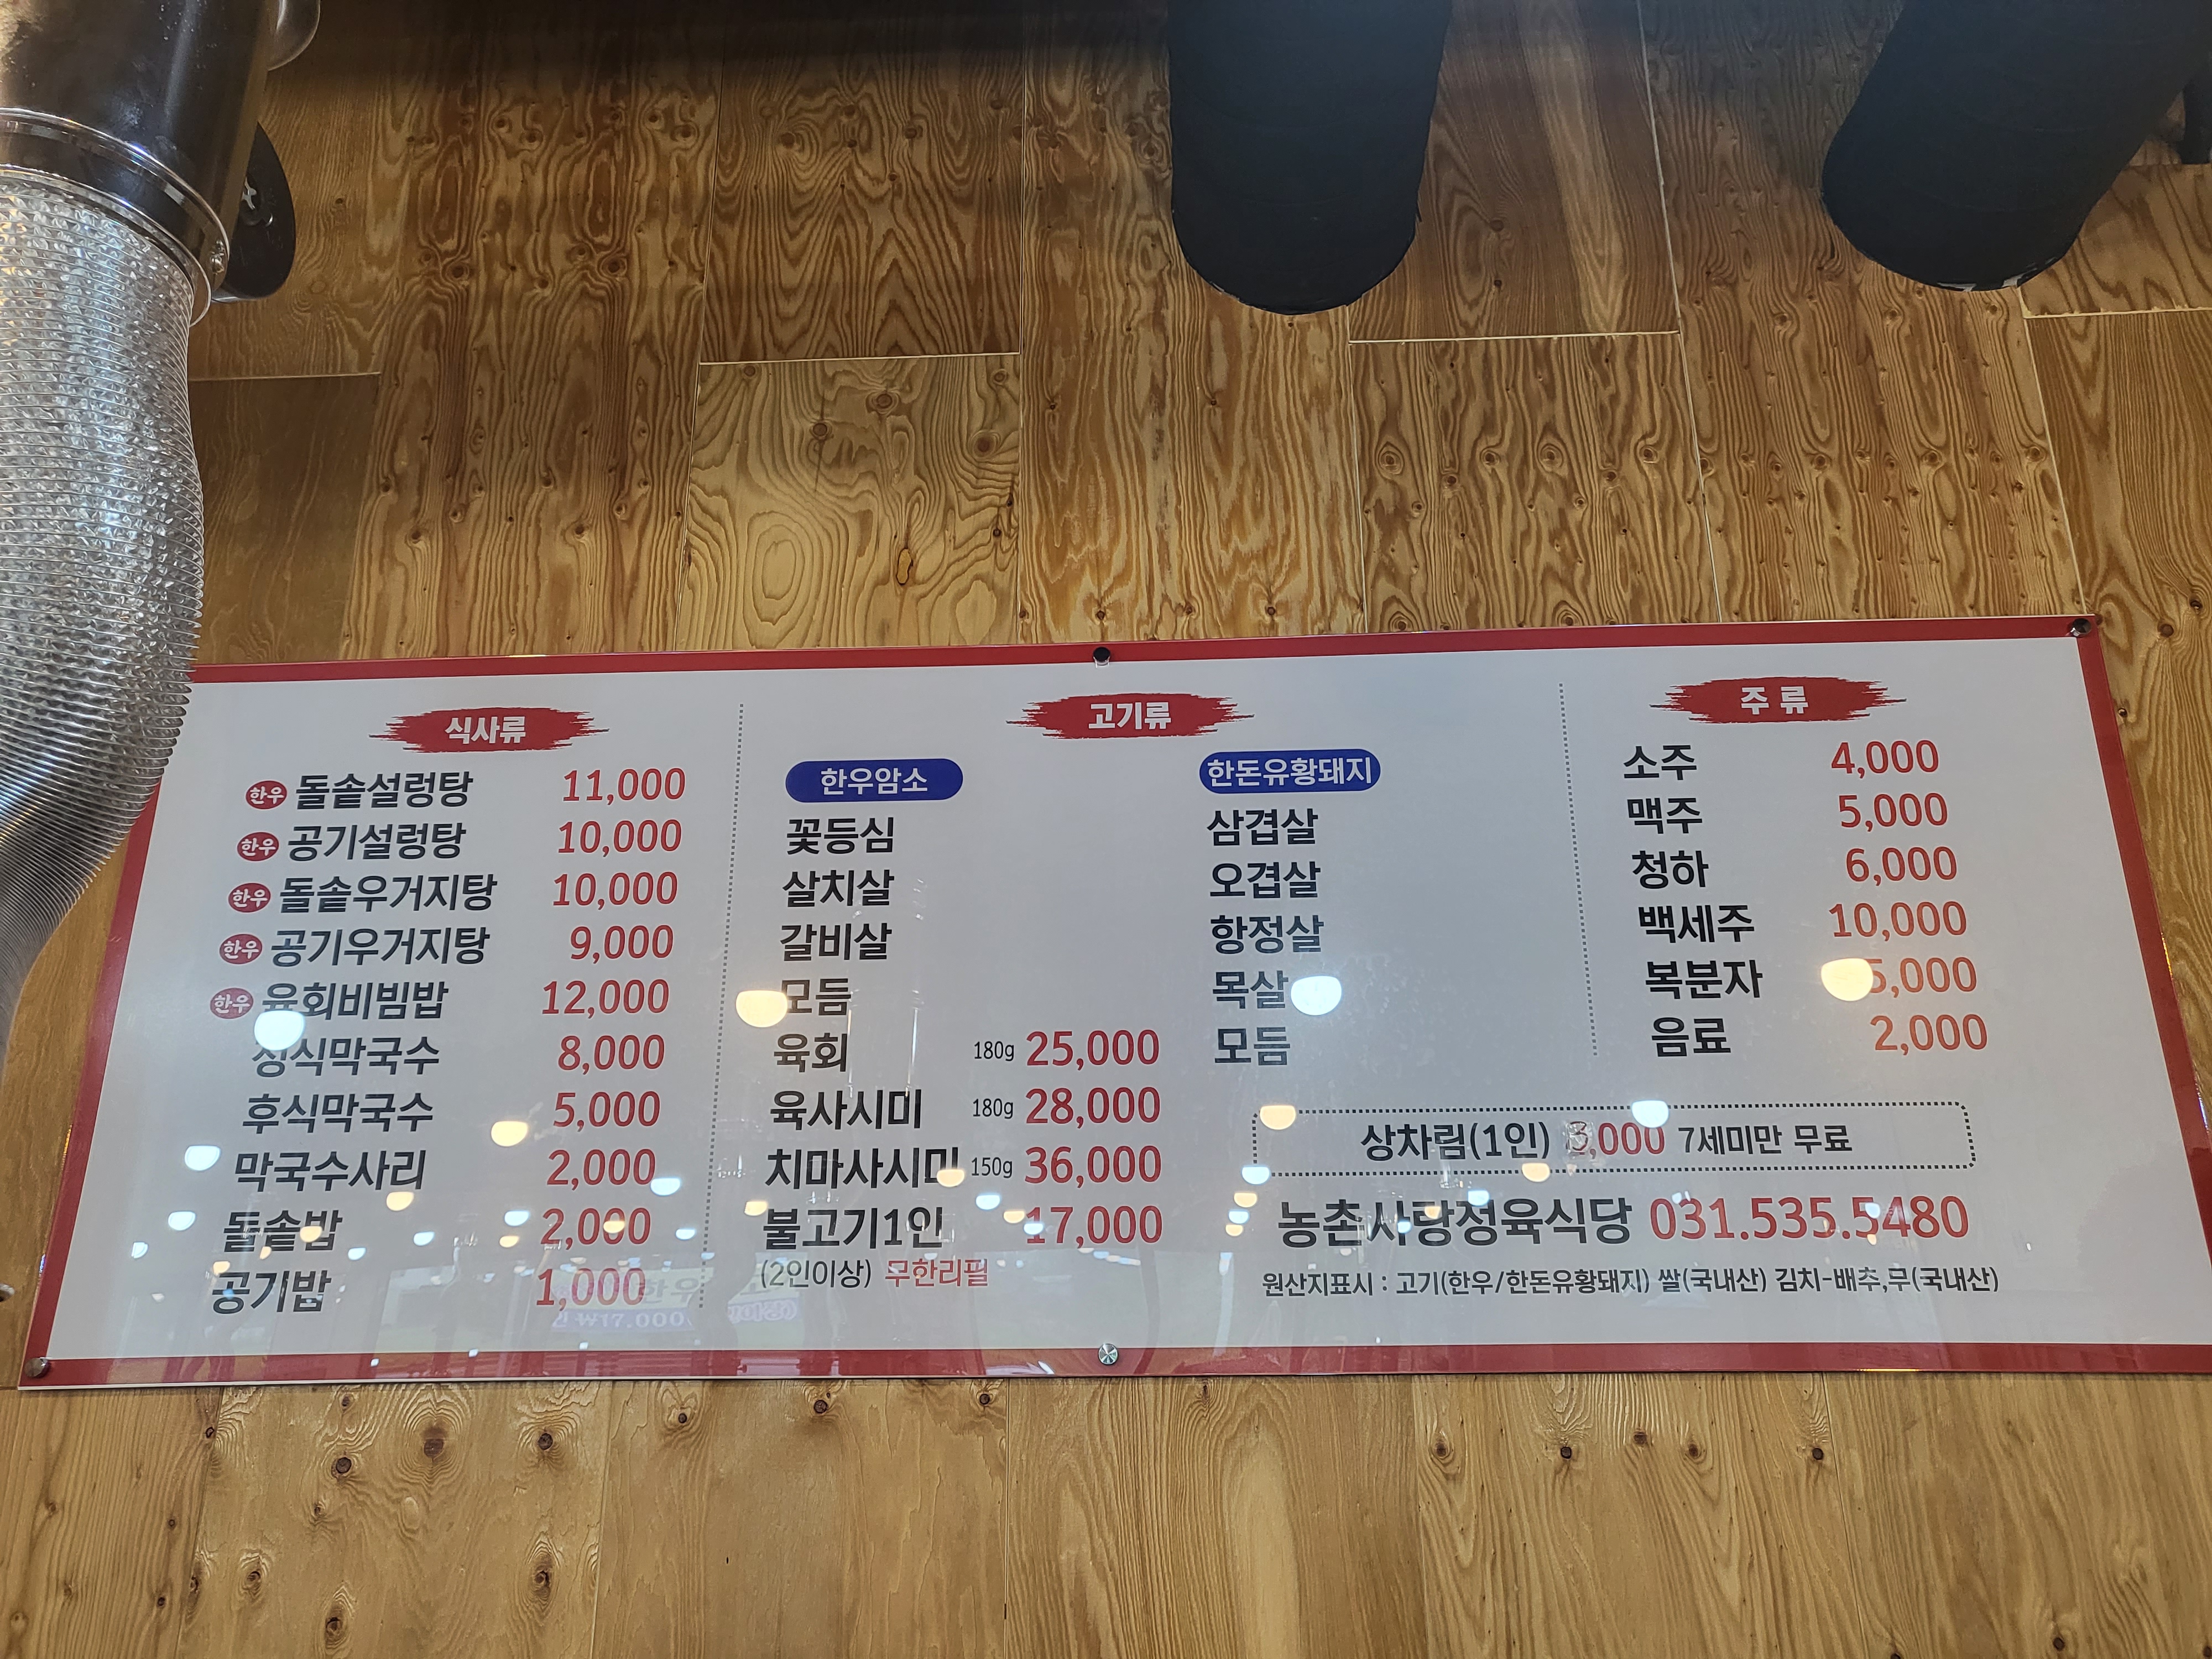 식사류
한우 돌솥설렁탕 11,000
한우 공기설렁탕 10,000
한우 돌솥우거지탕 10,000
한우 공기우거지탕 9,000
한우 육회비빔밥 12,000
정식막국수 8,000
후식막국수 5,000
막국수사리 2,000
돌솥밥 2,000
공기밥 1,000
고기류
한우암소
꽃등심
살치살
갈비살
모듬
육회 180g 25,000
육사시미 180g 28,000
치마사시미 150g 36,000
불고기1인 17,000
(2인이상) 무한리필
한돈유황돼지
삼겹살
오겹살
항정살
목살
모듬
주 류
소주 4,000
맥주 5,000
청하 6,000
백세주 10,000
복분자
음료 2,000
상차림(1인) 3,000 7세미만 무료
농촌사랑정육식당 031.535.5480
원산지표시 : 고기(한우/한돈유황돼지) 쌀(국내산) 김치-배추,무(국내산)